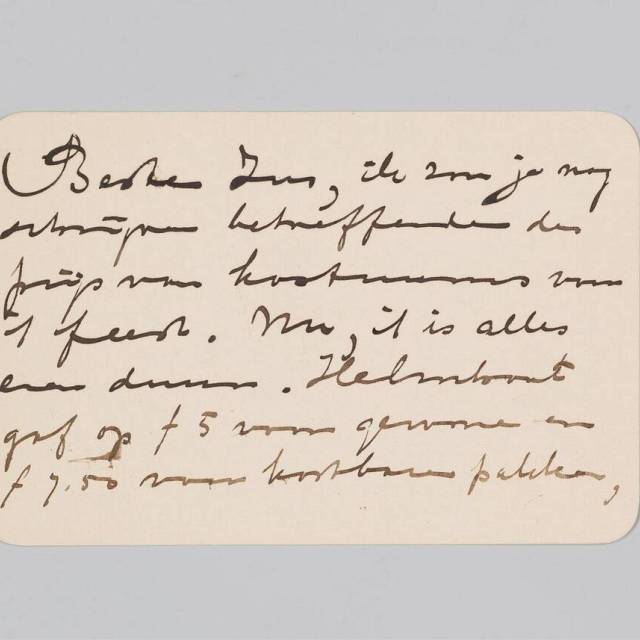 Beste Zus, ik zou je nog
schrijven betreffende den
prijs van kostuums voor
't feest. Nu, 't is alles
even duur. Helmhout
gaf op f 5 voor gewone en
f 7.50 voor kostbare pakken,